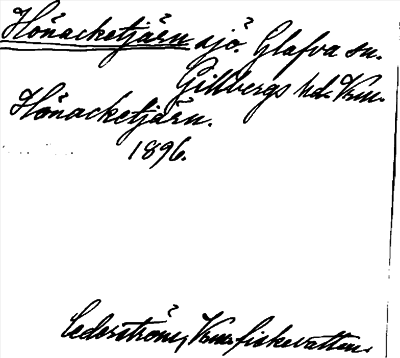 Hönacketjärn sjö. Glafva sn.
Gillbergs hd. Vrm.
Hönacketjärn.
1896.
Cederström, Vrms fiskevatten.